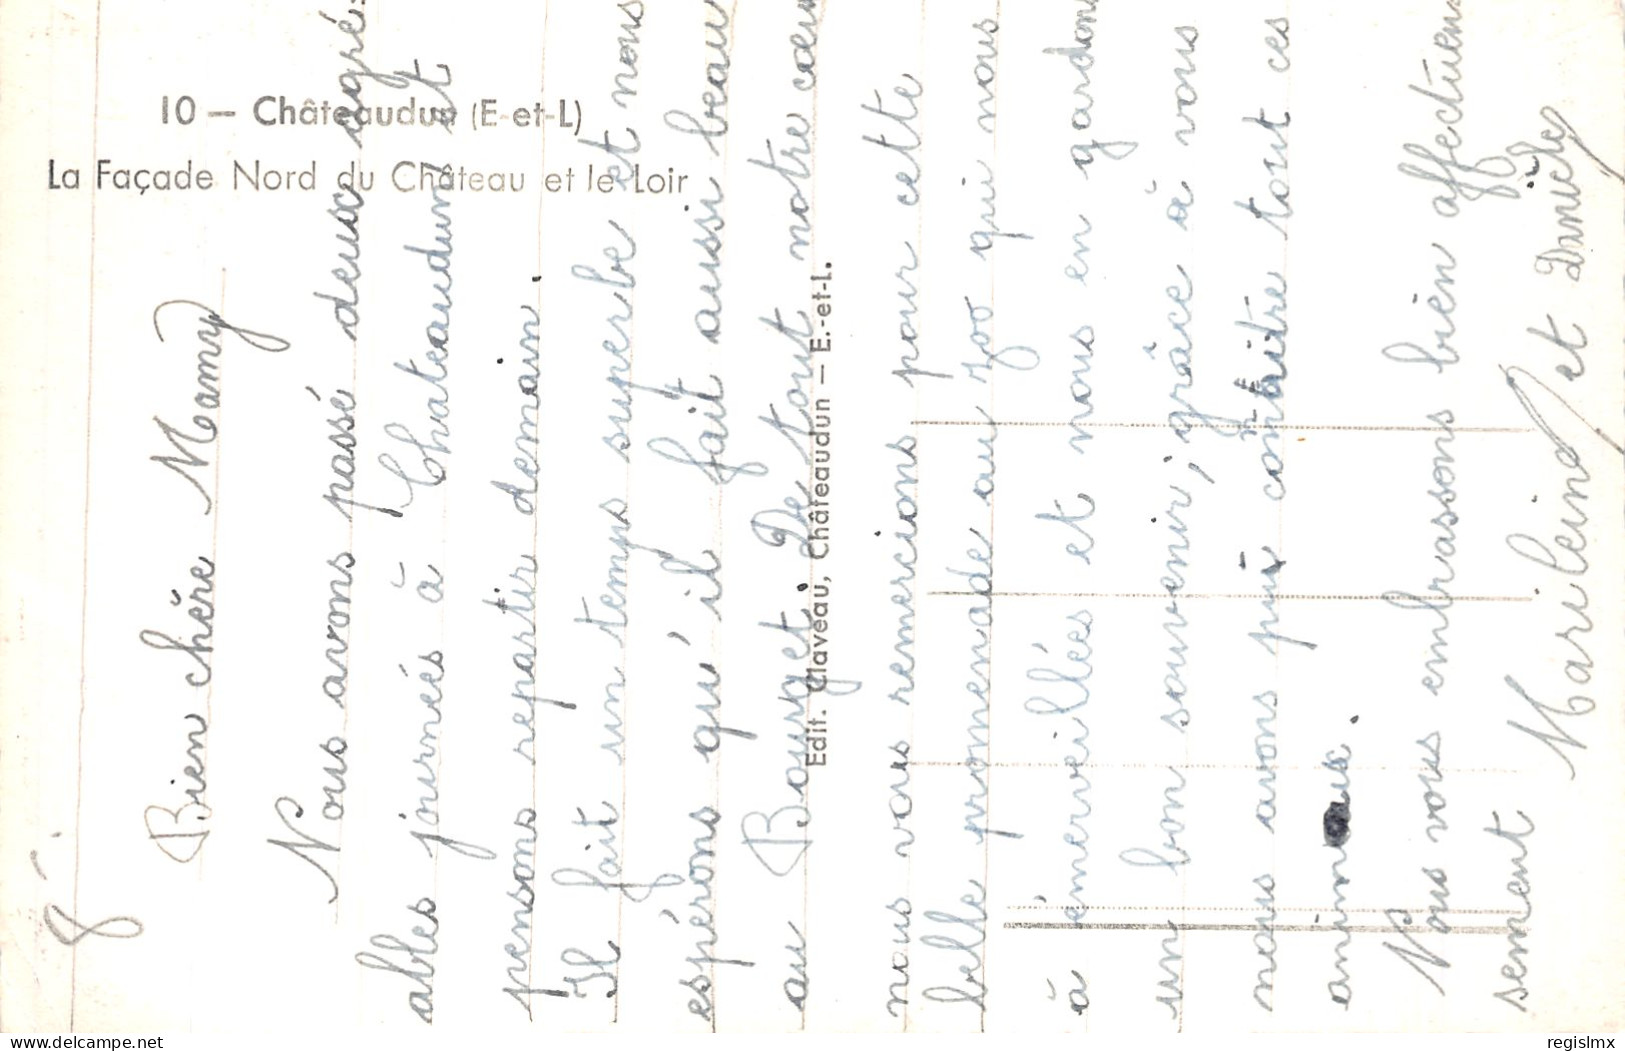 10 – Châteaudun (E-et-L)
La Façade Nord du Château et le Loir
Bien chère Mamy
Nous avons passé deux agré-
ables journées à Chateaudun et
pensons repartir demain.
Il fait un temps superbe et nous
espérons qu'il fait aussi beau
au Bourget. De tout notre cœur
nous vous remercions pour cette
belle promenade au zoo qui nous
à émerveillées et nous en gardons
un bon souvenir, grâce à vous
nous avons pû connaître tout ces
animaux.
Nous vous embrassons bien affectueu-
sement
et Danièle
Edit. Claveau, Châteaudun – E.-et-L.
delcampe.net
regislmx